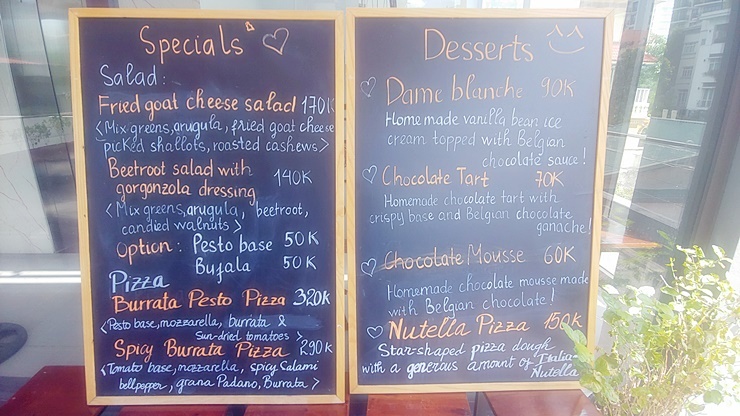 Specials
Salad:
Fried goat cheese salad 170K
<Mix greens, arugula, fried goat cheese
picked shallots, roasted cashews>
Beetroot salad with
gorgonzola dressing 140K
<Mix greens, arugula, beetroot,
candied walnuts>
Option: Pesto base 50K
Bufala 50K
Pizza
Burrata Pesto Pizza 320K
<Pesto base, mozzarella, burrata &
Sun-dried tomatoes>
Spicy Burrata Pizza 290K
<Tomato base, mozzarella, spicy Salami
bellpepper, grana Padano, Burrata>
Desserts
Dame blanche 90K
Home made vanilla bean ice
cream topped with Belgian
chocolate sauce!
Chocolate Tart 70K
Homemade chocolate tart with
crispy base and Belgian chocolate
ganache!
Chocolate Mousse 60K
Homemade chocolate mousse made
with Belgian chocolate!
Nutella Pizza 150K
Star-shaped pizza dough
with a generous amount of Italia-
Nutella